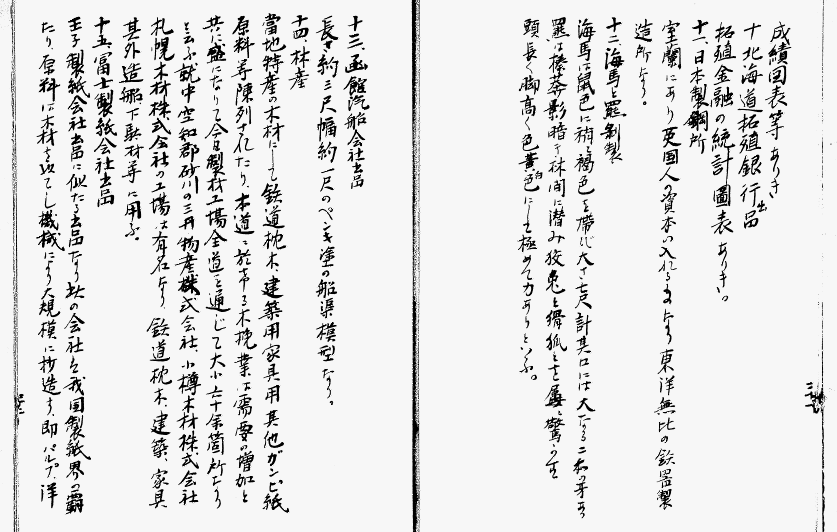 成績図表等ありき
十、北海道拓殖銀行出品
拓殖金融の統計図表ありき。
十一、日本製鋼所
室蘭にあり英国人の資本の入れるものなり東洋無比の鉄器製
造所なり。
十二、海馬と羆剥製
海馬は鼠色に稍褐色を帯び大さ七尺計其口には大なる二本の牙あり
羆は棒茶影暗き林間に潜み狡兎と猾狐とを屡々驚かせ
頭長く脚高く色黄白にして極めて力ありといふ。
十三、函館汽船会社出品
長さ約三尺幅約一尺のペンキ塗の船渠模型なり。
十四、林産
当地特産の木材にして鉄道枕木、建築用家具用其他ガンピ紙
原料等陳列されたり、本道に於ける木挽業は需要の増加と
共に盛になりて今日製材工場全道を通じて大小六十余箇所なり
と云ふ就中空知郡砂川の三井物産株式会社、小樽木材株式会社
札幌木材株式会社の工場は有名なり鉄道枕木、建築、家具
其外造船下駄材等に用ふ。
十五、富士製紙会社出品
王子製紙会社出品に似たる出品なり此の会社も我国製紙界の覇
たり、原料は木材を以てし機械により大規模に抄造す、即パルプ、洋